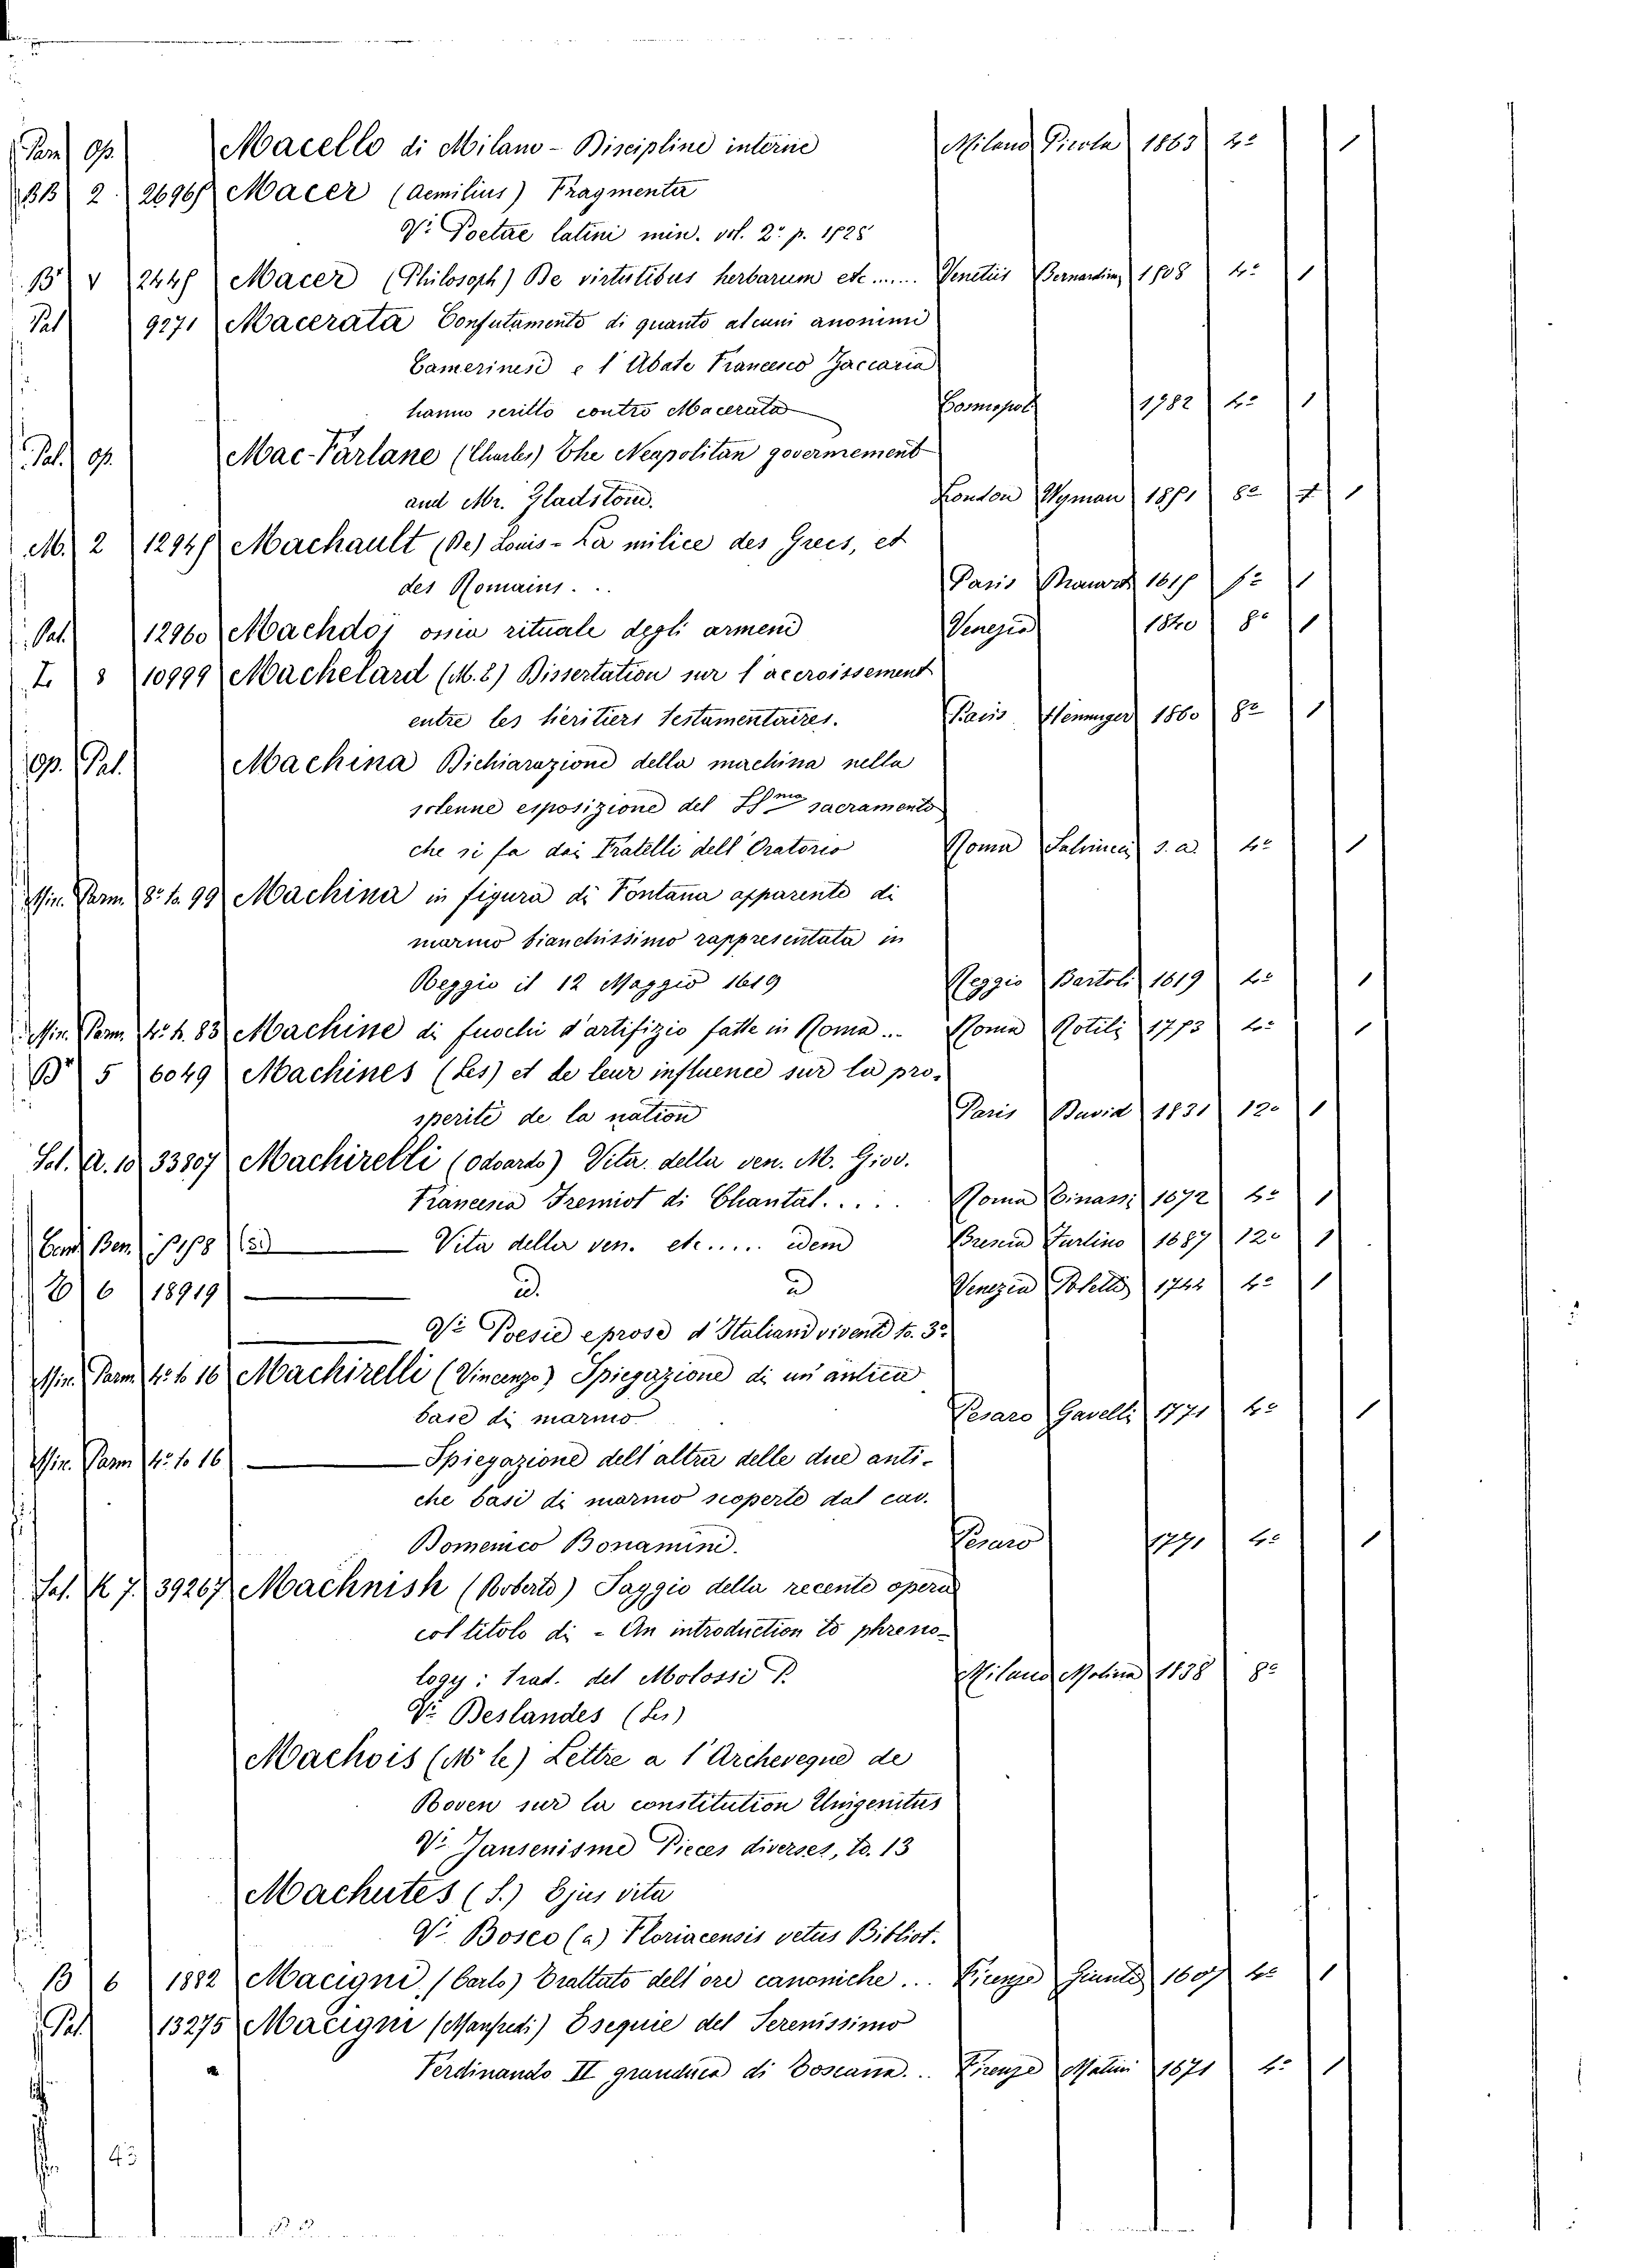 Parm Op. Macello di Milano - Discipline interne Milano Pirola 1863 4º 1
BB 2 26965 Macer (Aemilius) Fragmenta
Vi Poetae latini min. vol. 2º p. 1528
Bº V 12445 Macer (Philosoph) De virtutibus herbarum etc...... Venetiis Bernardin 1508 4º 1
Pal 9271 Macerata Confutamento di quanto alcuni anonimi
Camerinesi e l'Abate Francesco Zaccaria
hanno scritto contro Macerata Cosmopoli 1782 4º 1
Pal. op. Mac-Farlane (Charles) The Neapolitan government
and Mr. Gladstone. London Wyman 1851 8º 1
M. 2 12945 Machault (De) Louis - La milice des Grecs, et
des Romains... Paris 1615 1
Pal. 12960 Machdoj ossia rituale degli armeni Venezia 1840 8º 1
L. 8 10999 Machelard (M. E) Dissertation sur l'accroissement
entre les heritiers testamentaires. Paris Hennuyer 1860 8º 1
Op. Pal. Machina Dichiarazione della machina nella
solenne esposizione del SSmo sacramento
che si fa dai Fratelli dell'Oratorio Roma Salvinea s. a. 4º 1
Min. Parm. 8º to. 99 Machina in figura di Fontana apparente di
marmo bianchissimo rappresentata in
Reggio il 12 Maggio 1619 Reggio Bartoli 1619 4º 1
Min. Parm. 4º to. 83 Machine di fuochi d'artifizio fatte in Roma... Roma Rotili 1773 4º 1
Bº 5 6049 Machines (Les) et de leur influence sur la pro-
sperité de la nation Paris David 1831 12º 1
Sal. A. 10 33807 Machirelli (Odoardo) Vita della ven. M. Giov.
Francesca Fremiot di Chantal..... Roma Cinassi 1672 4º 1
Ben. Vita della ven. etc...... idem Brescia Turlino 1687 12º 1
Z 6 18919 id. id Venezia Poletti 1744 4º 1
Vi Poesie e prose d'Italiani viventi to. 3º
Min. Parm. 4º to 16 Machirelli (Vincenzo) Spiegazione di un'antica
base di marmo Pesaro Gavelli 1771 4º 1
Min. Parm 4º to 16 Spiegazione dell'altra delle due anti-
che basi di marmo scoperte dal cav.
Domenico Bonamini. Pesaro 1771 4º 1
Sal. K 7. 39267 Machnish (Roberto) Saggio della recente opera
col titolo di - An introduction to phreno-
logy: trad. del Molossi P. Milano Molina 1838 8º
Vi Deslandes (Les)
Machois (Mr le) Lettre a l'Archeveque de
Roven sur la constitution Unigenitus
Vi Jansenisme Pieces diverses, to. 13
Machutes (S.) Ejus vita
Vi Bosco (a) Floriacensis vetus Bibliot.
B 6 1882 Macigni, (Carlo) Trattato dell'ore canoniche... Firenze Giunti 1607 4º 1
Pal. 13275 Macigni (Manfredi) Esequie del Serenissimo
Ferdinando II granduca di Toscana... Firenze Matini 1671 4º 1
43